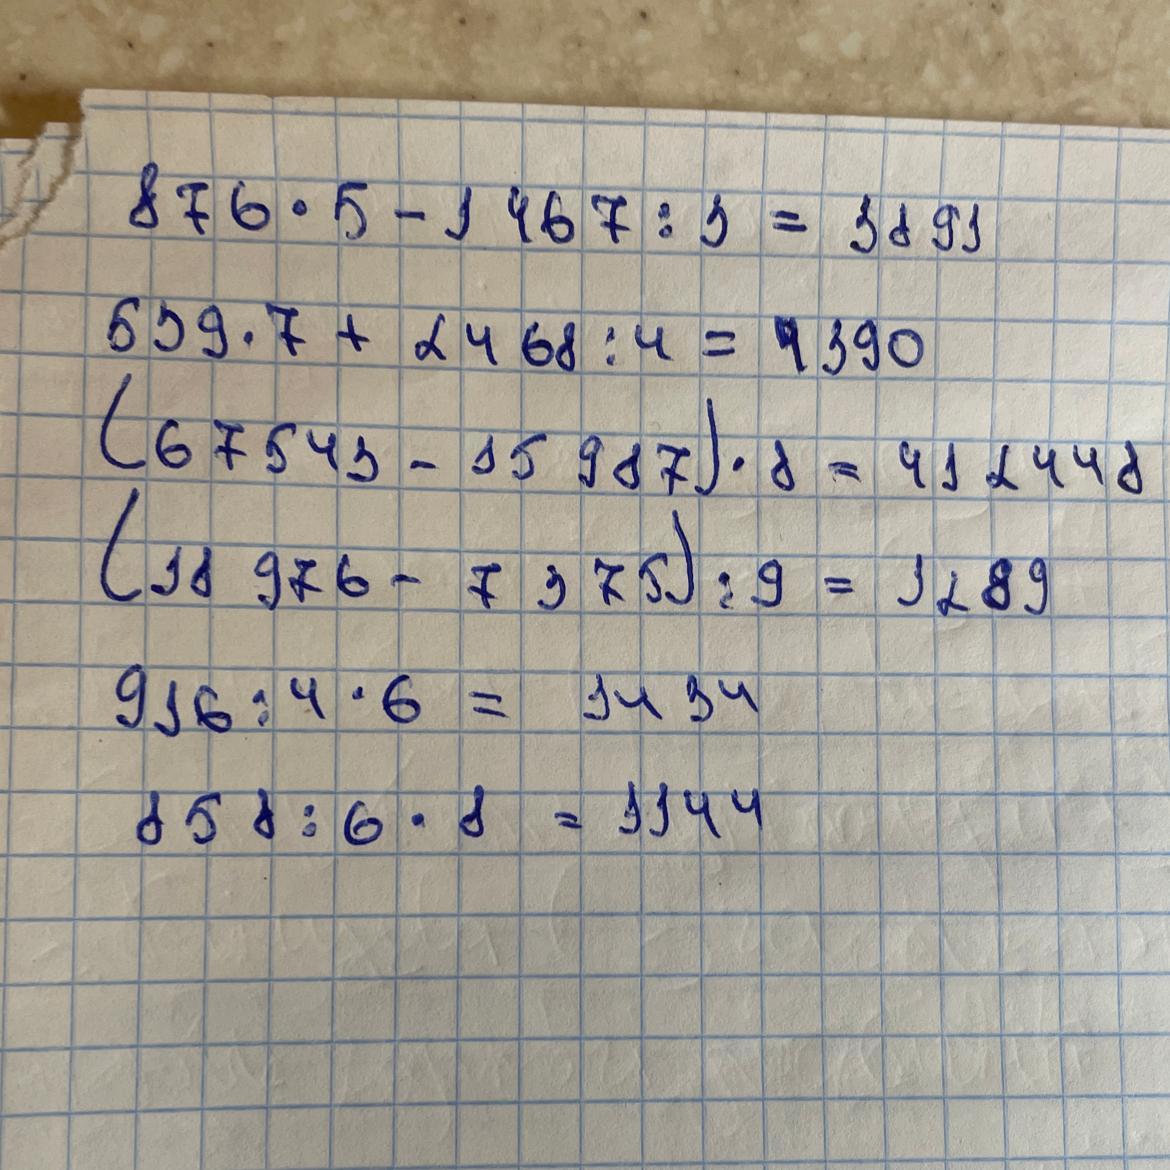 876·5-1467:3=3891
539·7+2468:4=4390
(67543-15987)·8=412448
(18976-7375):9=1289
916:4·6=1434
858:6·8=1144